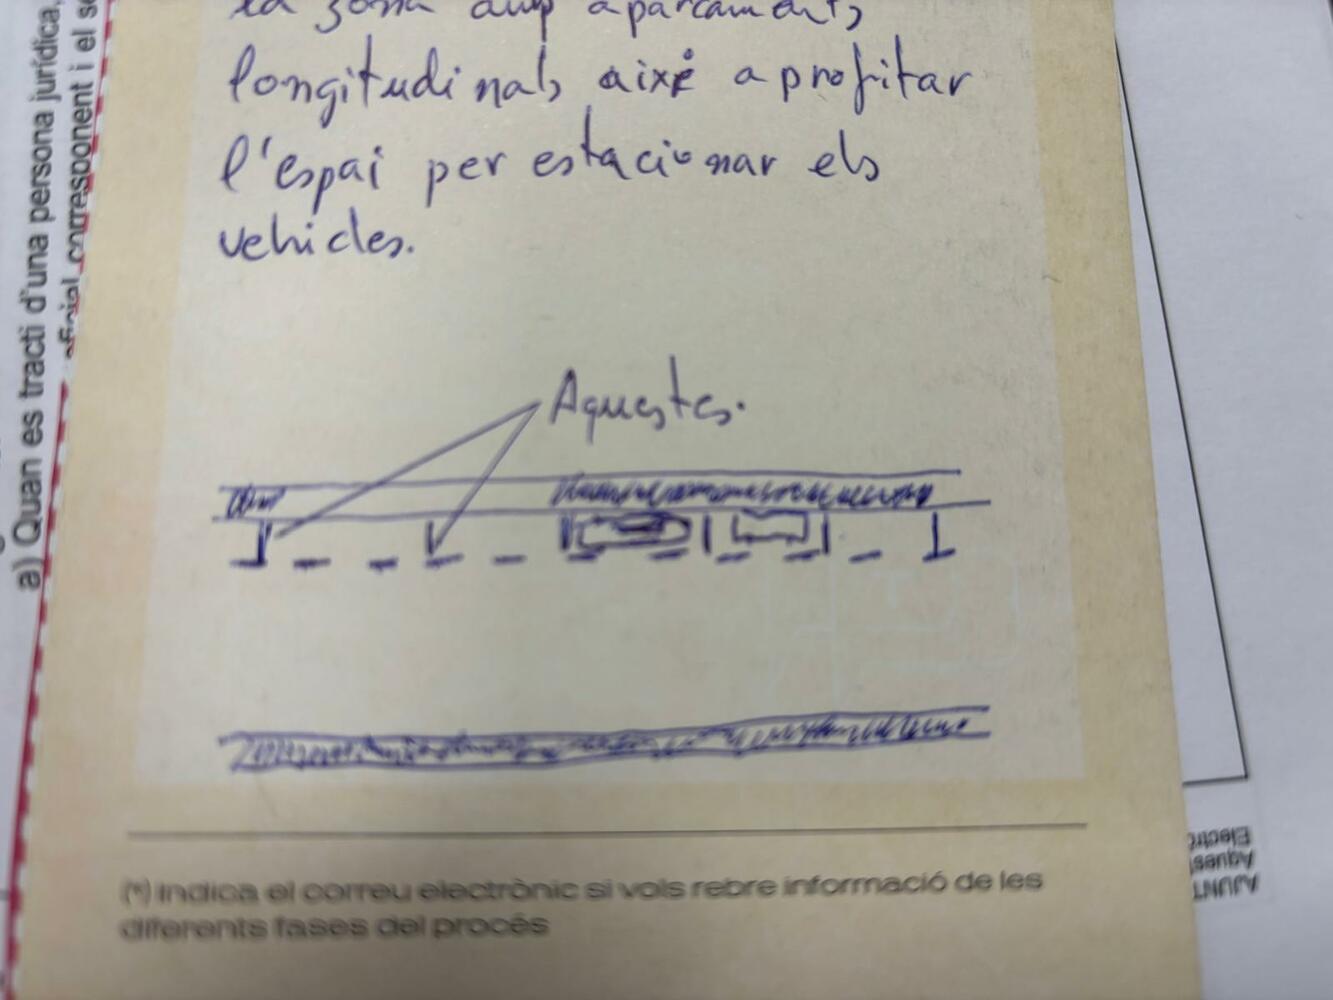 la zona amb aparcaments
longitudinals aixé aprofitar
l'espai per estacionar els
vehicles.
Aquestes.
(*) Indica el correu electrònic si vols rebre informació de les
diferents fases del procés
a) Quan es tracti d'una persona jurídica,
oficial corresponent i el
Electrò
Aques
AJUNT